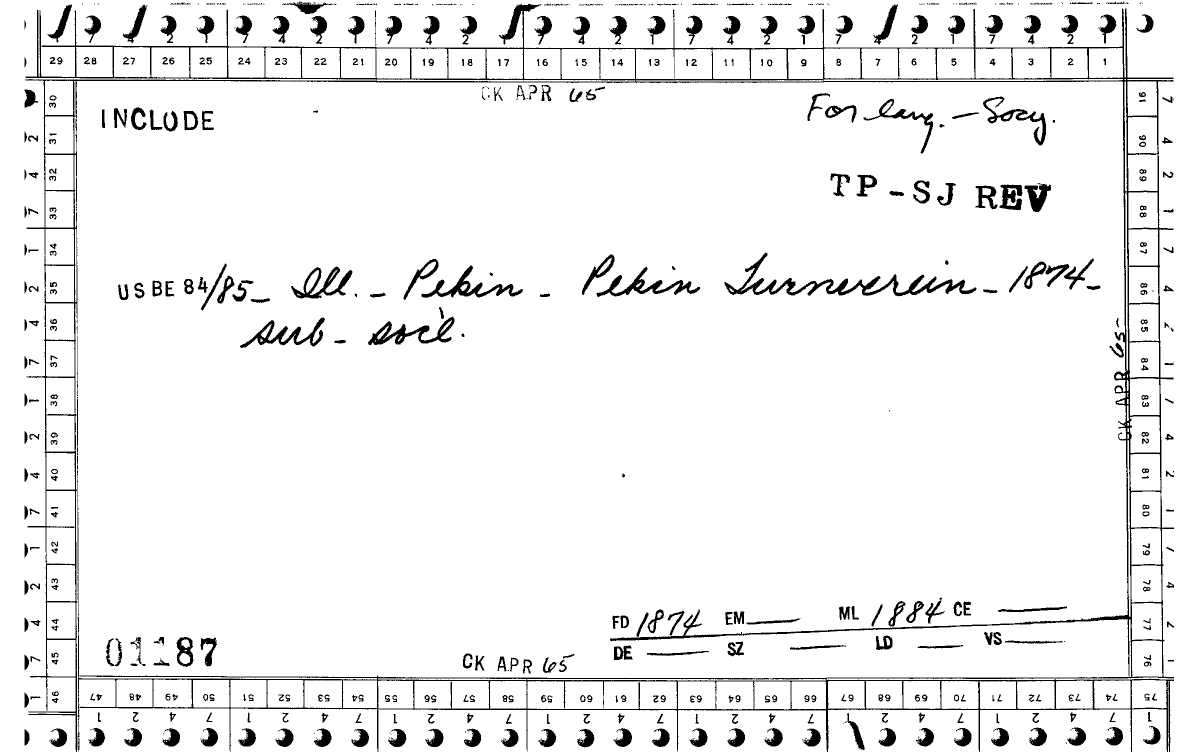 7 4 2 1 7 4 2 1 7 4 2 1 7 4 2 1 7 4 2 1 7 4 2 1 7 4 2 1
29 28 27 26 25 24 23 22 21 20 19 18 17 16 15 14 13 12 11 10 9 8 7 6 5 4 3 2 1
CK APR 65
INCLUDE
For lang. - Socy.
TP-SJ REV
USBE 84/85 - Ill. - Pekin - Pekin Turnverein - 1874 -
sub - soc'l.
CK APR 65
FD 1874 EM ML 1884 CE
DE SZ LD VS
01187
CK APR 65
30 31 32 33 34 35 36 37 38 39 40 41 42 43 44 45 46
91 90 89 88 87 86 85 84 83 82 81 80 79 78 77 76 75
47 48 49 50 51 52 53 54 55 56 57 58 59 60 61 62 63 64 65 66 67 68 69 70 71 72 73 74 75
1 2 4 7 1 2 4 7 1 2 4 7 1 2 4 7 1 2 4 7 1 2 4 7 1 2 4 7 1